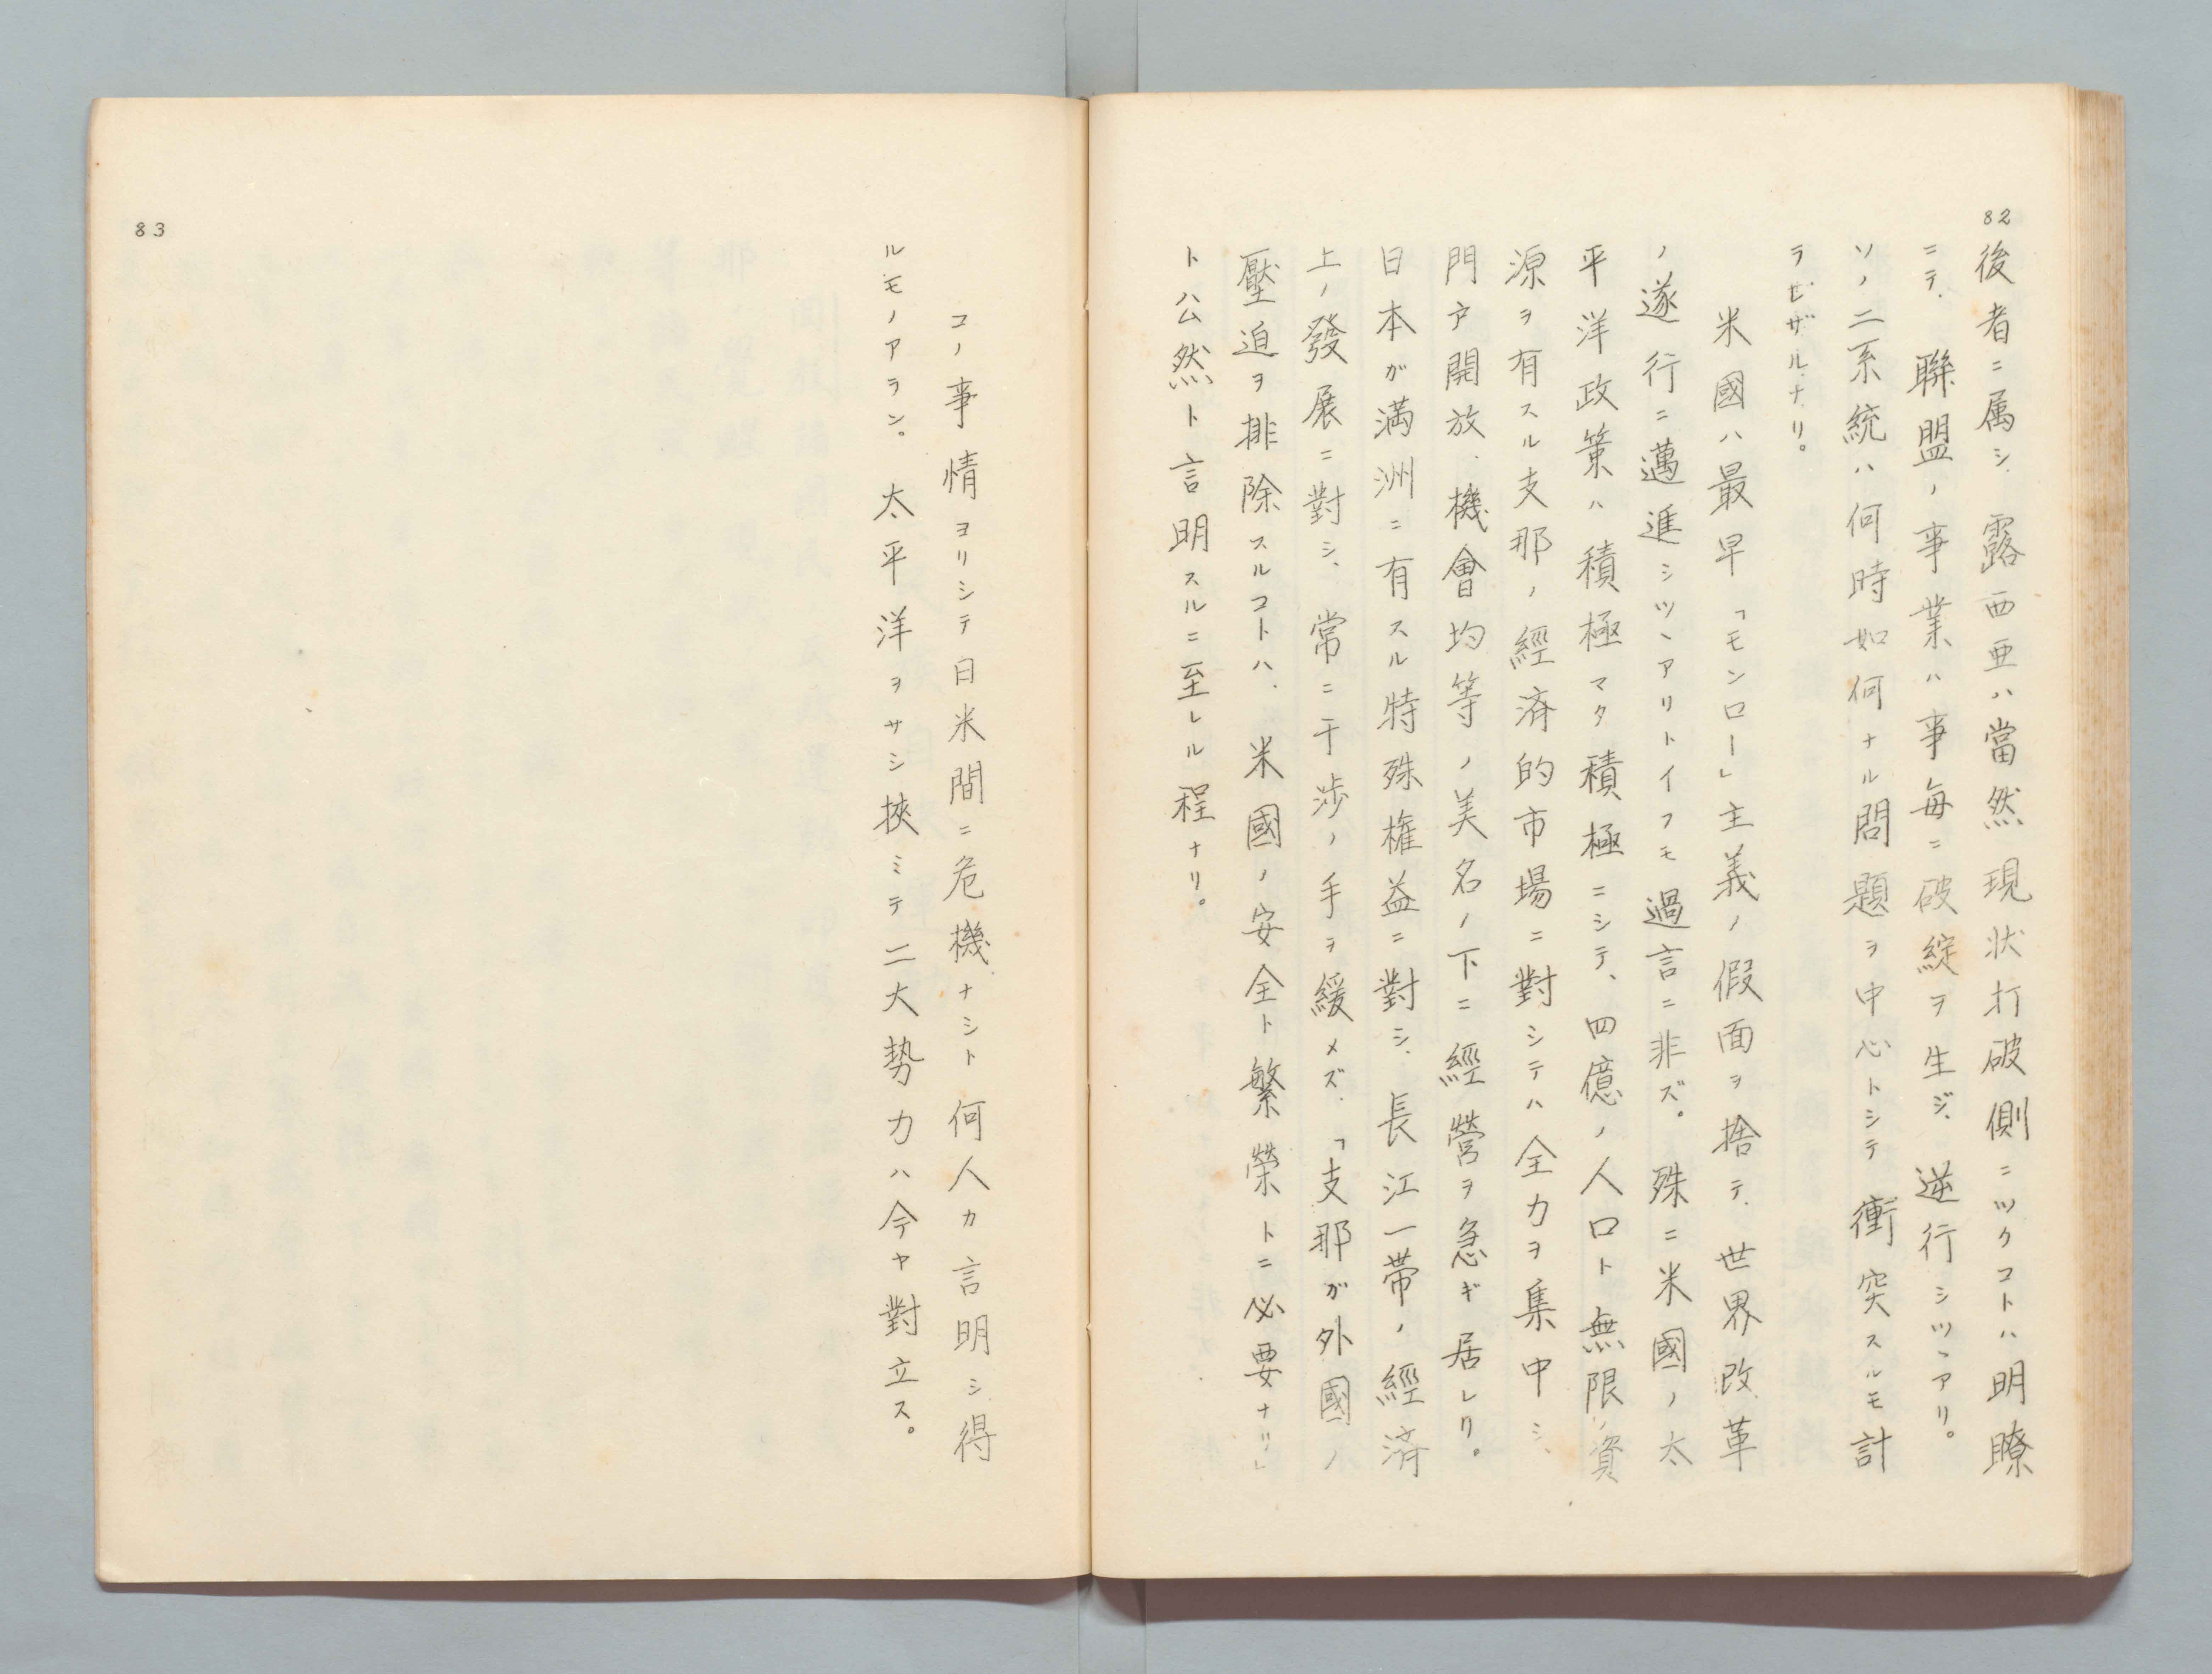 82
後者ニ属シ、露西亜ハ當然現状打破側ニツクコトハ明瞭
ニテ、聯盟ノ事業ハ事毎ニ破綻ヲ生ジ、逆行シツヽアリ。
ソノ二系統ハ何時如何ナル問題ヲ中心トシテ衝突スルモ計
ラレザルナリ。
米國ハ最早「モンロー」主義ノ假面ヲ捨テ、世界改革
ノ遂行ニ邁進シツヽアリトイフモ過言ニ非ズ。殊ニ米國ノ太
平洋政策ハ積極マタ積極ニシテ、四億ノ人口ト無限ノ資
源ヲ有スル支那ノ經済的市場ニ對シテハ全力ヲ集中シ、
門戸開放、機會均等ノ美名ノ下ニ經營ヲ急ギ居レリ。
日本が満洲ニ有スル特殊権益ニ對シ、長江一帯ノ經済
上ノ發展ニ對シ、常ニ干渉ノ手ヲ緩メズ、「支那ガ外國ノ
壓迫ヲ排除スルコトハ、米國ノ安全ト繁榮トニ必要ナリ」
ト公然ト言明スルニ至レル程ナリ。
コノ事情ヨリシテ日米間ニ危機ナシト何人カ言明シ得
ルモノアラン。太平洋ヲサシ挾ミテ二大勢力ハ今ヤ對立ス。
83